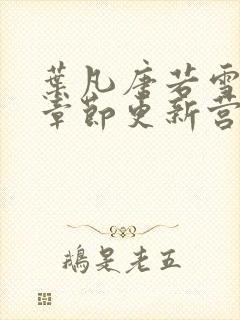 葉凡唐若雪
章節更新營
鵝是老五